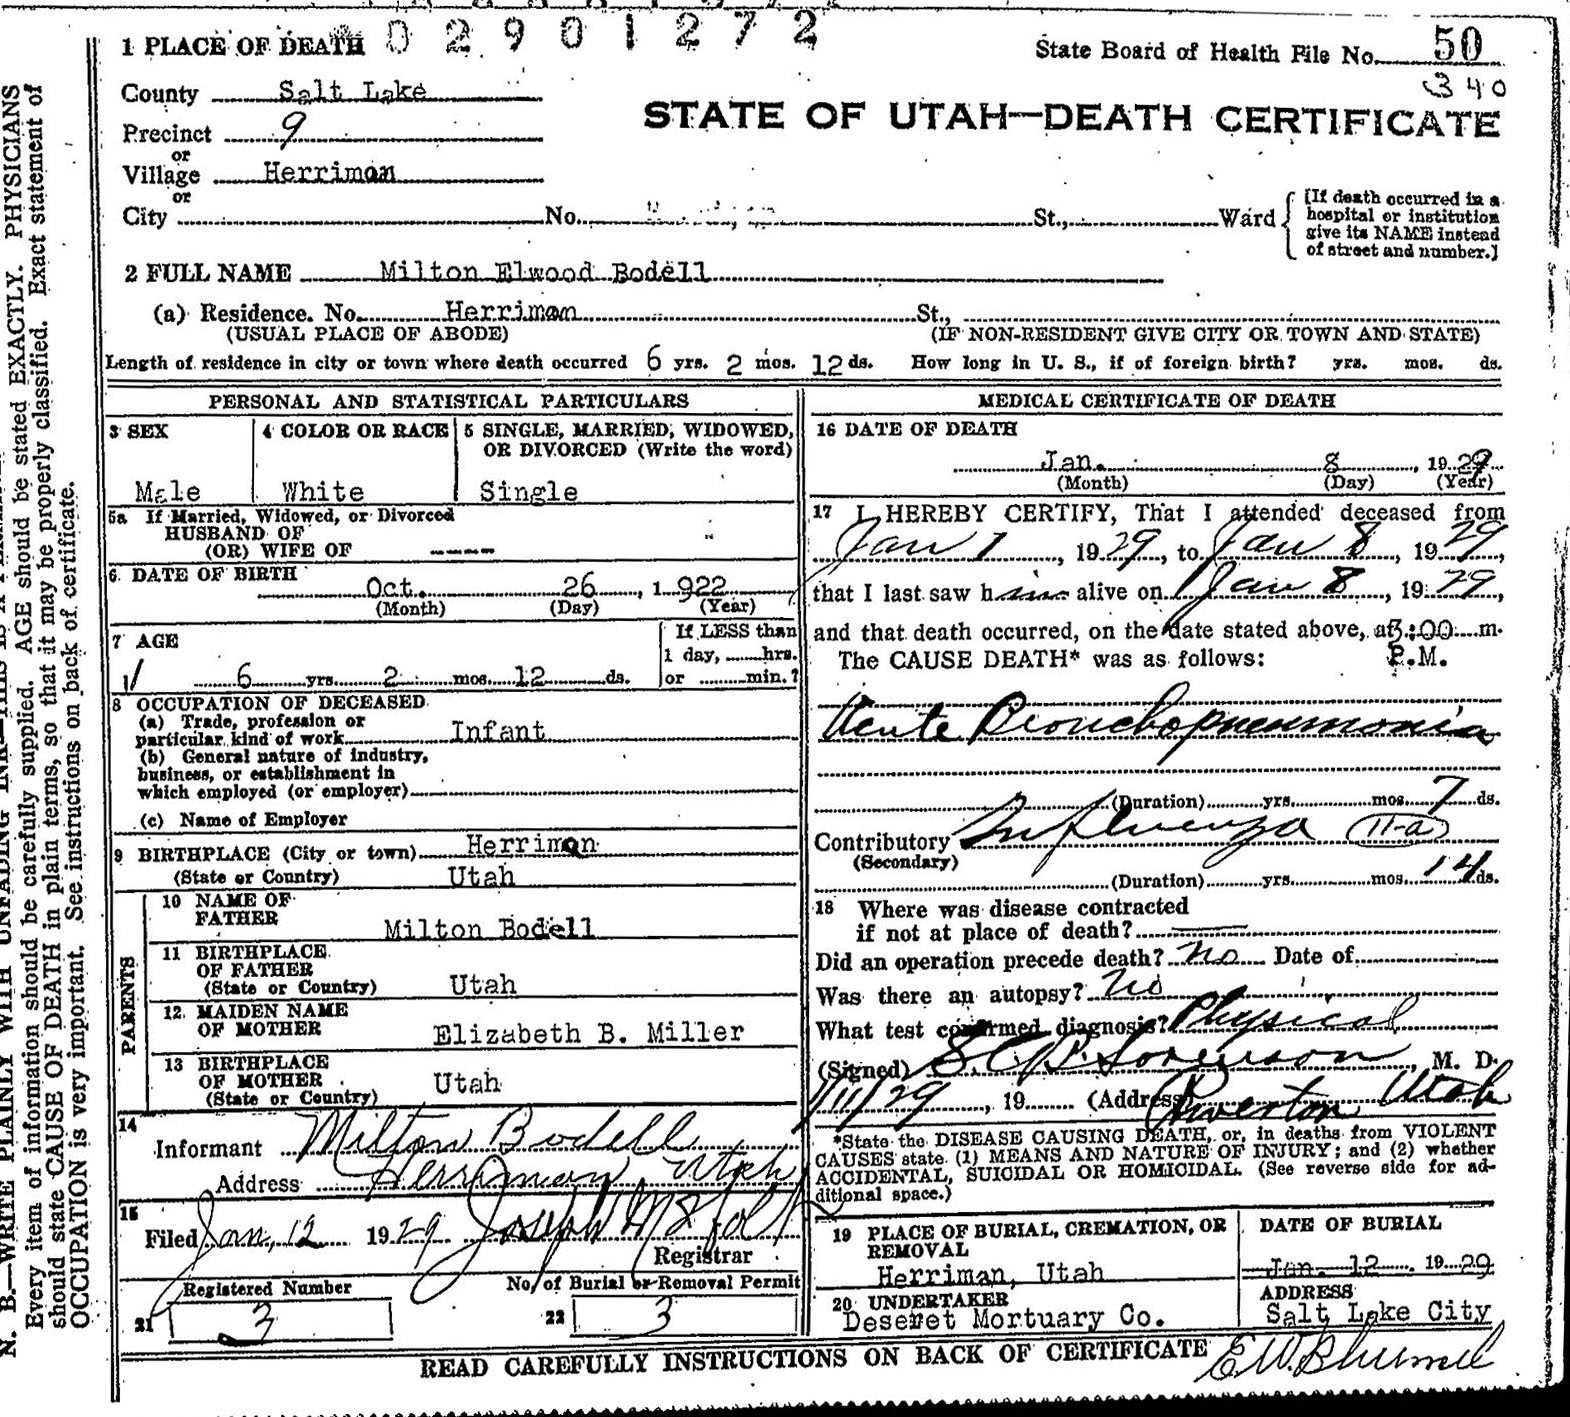 02901272
1 PLACE OF DEATH
State Board of Health File No. 50
340
County Salt Lake
STATE OF UTAH—DEATH CERTIFICATE
Precinct 9
or
Village Herriman
or
City No. St., Ward
[If death occurred in a
hospital or institution
give its NAME instead
of street and number.]
2 FULL NAME Milton Elwood Bodell
(a) Residence. No. Herriman St.,
(USUAL PLACE OF ABODE) (IF NON-RESIDENT GIVE CITY OR TOWN AND STATE)
Length of residence in city or town where death occurred 6 yrs. 2 mos. 12 ds. How long in U. S., if of foreign birth? yrs. mos. ds.
PERSONAL AND STATISTICAL PARTICULARS
3 SEX
Male
4 COLOR OR RACE
White
5 SINGLE, MARRIED, WIDOWED,
OR DIVORCED (Write the word)
Single
5a If Married, Widowed, or Divorced
HUSBAND OF
(OR) WIFE OF ----
6 DATE OF BIRTH
Oct. 26, 1922
(Month) (Day) (Year)
7 AGE
6 yrs. 2 mos. 12 ds.
If LESS than
1 day, hrs.
or min.?
8 OCCUPATION OF DECEASED
(a) Trade, profession or
particular kind of work Infant
(b) General nature of industry,
business, or establishment in
which employed (or employer)
(c) Name of Employer
9 BIRTHPLACE (City or town) Herriman
(State or Country) Utah
PARENTS
10 NAME OF
FATHER Milton Bodell
11 BIRTHPLACE
OF FATHER
(State or Country) Utah
12 MAIDEN NAME
OF MOTHER Elizabeth B. Miller
13 BIRTHPLACE
OF MOTHER Utah
(State or Country)
14
Informant Milton Bodell
Address Herriman Utah
15
Filed Jan, 12 1929
Registrar
Registered Number
21 3
No. of Burial or Removal Permit
22 3
MEDICAL CERTIFICATE OF DEATH
16 DATE OF DEATH
Jan. 8, 1929
(Month) (Day) (Year)
17 I HEREBY CERTIFY, That I attended deceased from
Jan 1, 1929, to Jan 8, 1929,
that I last saw him alive on Jan 8, 1929,
and that death occurred, on the date stated above, at 3:00 m.
P.M.
The CAUSE DEATH* was as follows:
Acute Bronchopneumonia
(Duration) yrs. mos. 7 ds.
Contributory Influenza 11-a
(Secondary)
(Duration) yrs. mos. 14 ds.
18 Where was disease contracted
if not at place of death?
Did an operation precede death? no Date of
Was there an autopsy? no
What test confirmed diagnosis? Physical
(Signed) Sorenson, M. D.
1/11/29, 19 (Address) Riverton Utah
*State the DISEASE CAUSING DEATH, or, in deaths from VIOLENT
CAUSES state (1) MEANS AND NATURE OF INJURY; and (2) whether
ACCIDENTAL, SUICIDAL OR HOMICIDAL. (See reverse side for ad-
ditional space.)
19 PLACE OF BURIAL, CREMATION, OR
REMOVAL
Herriman, Utah
DATE OF BURIAL
Jan. 12. 1929
20 UNDERTAKER
Deseret Mortuary Co.
ADDRESS
Salt Lake City
READ CAREFULLY INSTRUCTIONS ON BACK OF CERTIFICATE
N. B.—WRITE PLAINLY WITH UNFADING INK—THIS IS A
Every item of information should be carefully supplied. AGE should be stated EXACTLY. PHYSICIANS
should state CAUSE OF DEATH in plain terms, so that it may be properly classified. Exact statement of
OCCUPATION is very important. See instructions on back of certificate.